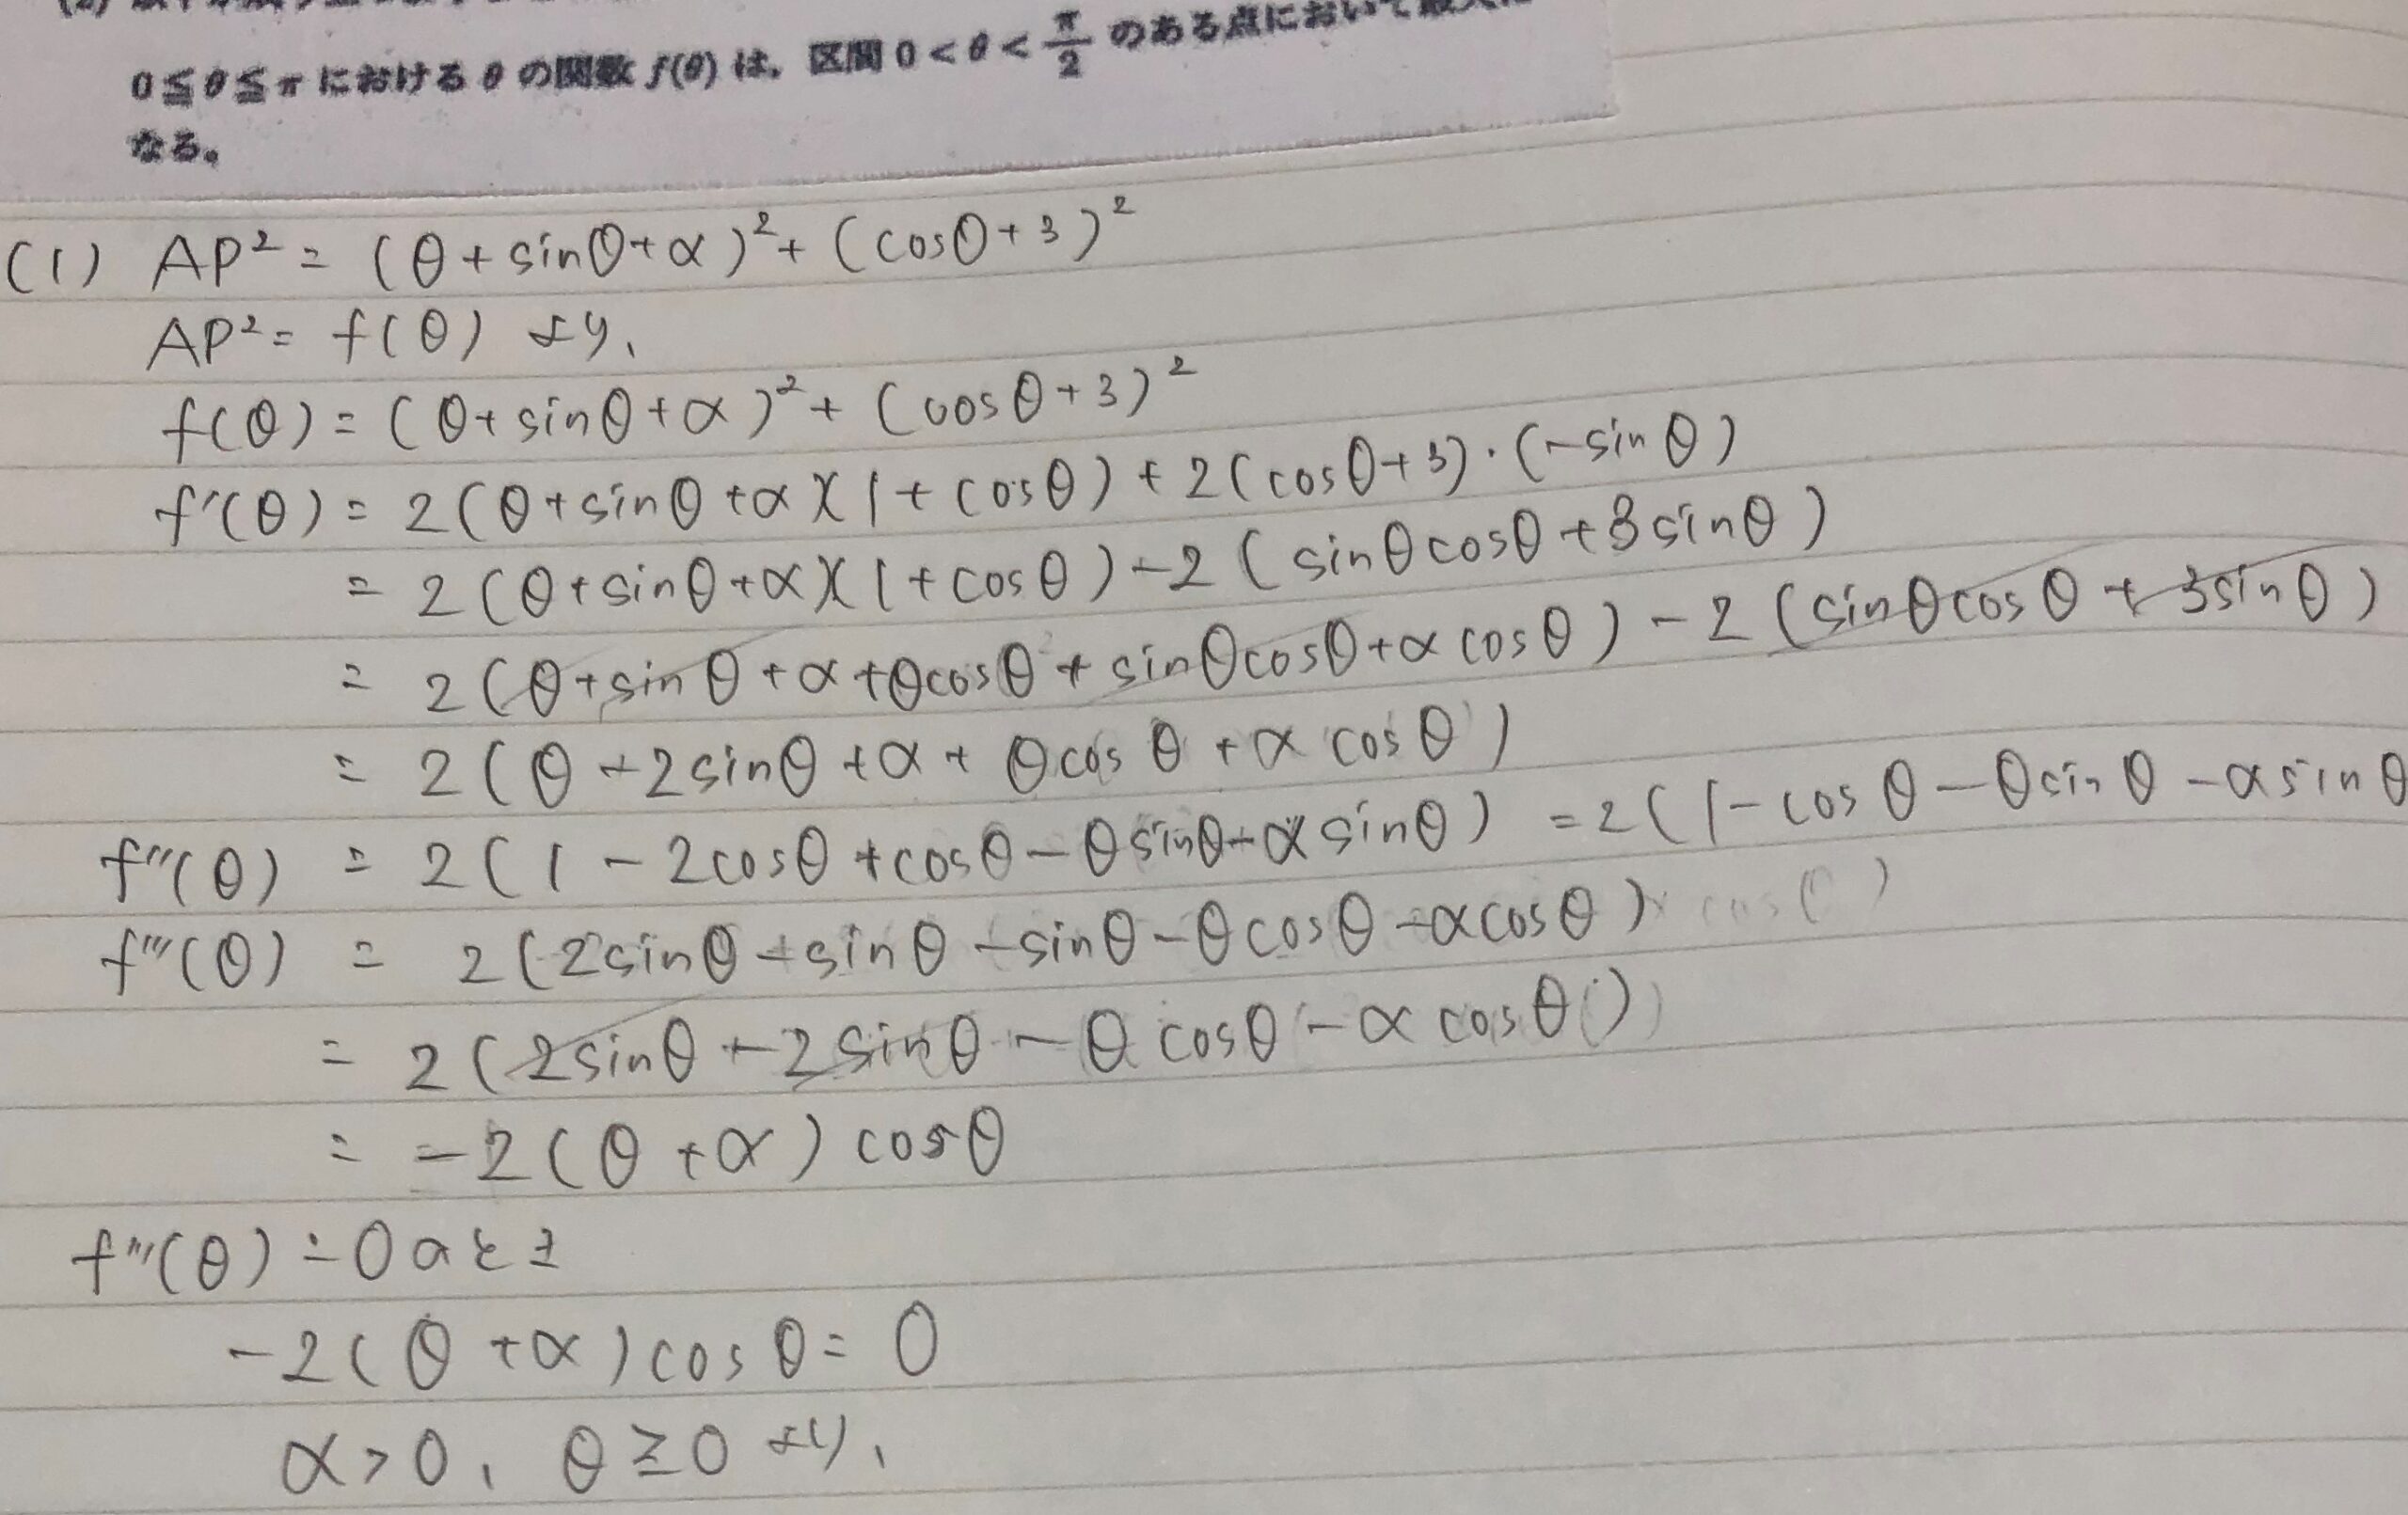 0≦θ≦π における θ の関数 f(θ) は，区間 0<θ<π/2 のある点において
なる。
(1) AP² = (θ+sinθ+α)² + (cosθ+3)²
AP² = f(θ) より、
f(θ) = (θ+sinθ+α)² + (cosθ+3)²
f'(θ) = 2(θ+sinθ+α)(1+cosθ) + 2(cosθ+3)・(-sinθ)
= 2(θ+sinθ+α)(1+cosθ) - 2(sinθcosθ+3sinθ)
= 2(θ+sinθ+α+θcosθ+sinθcosθ+αcosθ) - 2(sinθcosθ+3sinθ)
= 2(θ-2sinθ+α+θcosθ+αcosθ)
f''(θ) = 2(1-2cosθ+cosθ-θsinθ-αsinθ) = 2(1-cosθ-θsinθ-αsinθ
f'''(θ) = 2(2sinθ-sinθ-sinθ-θcosθ-αcosθ)
= 2(2sinθ-2sinθ-θcosθ-αcosθ)
= -2(θ+α)cosθ
f'''(θ)=0のとき
-2(θ+α)cosθ=0
α>0, θ≧0より、